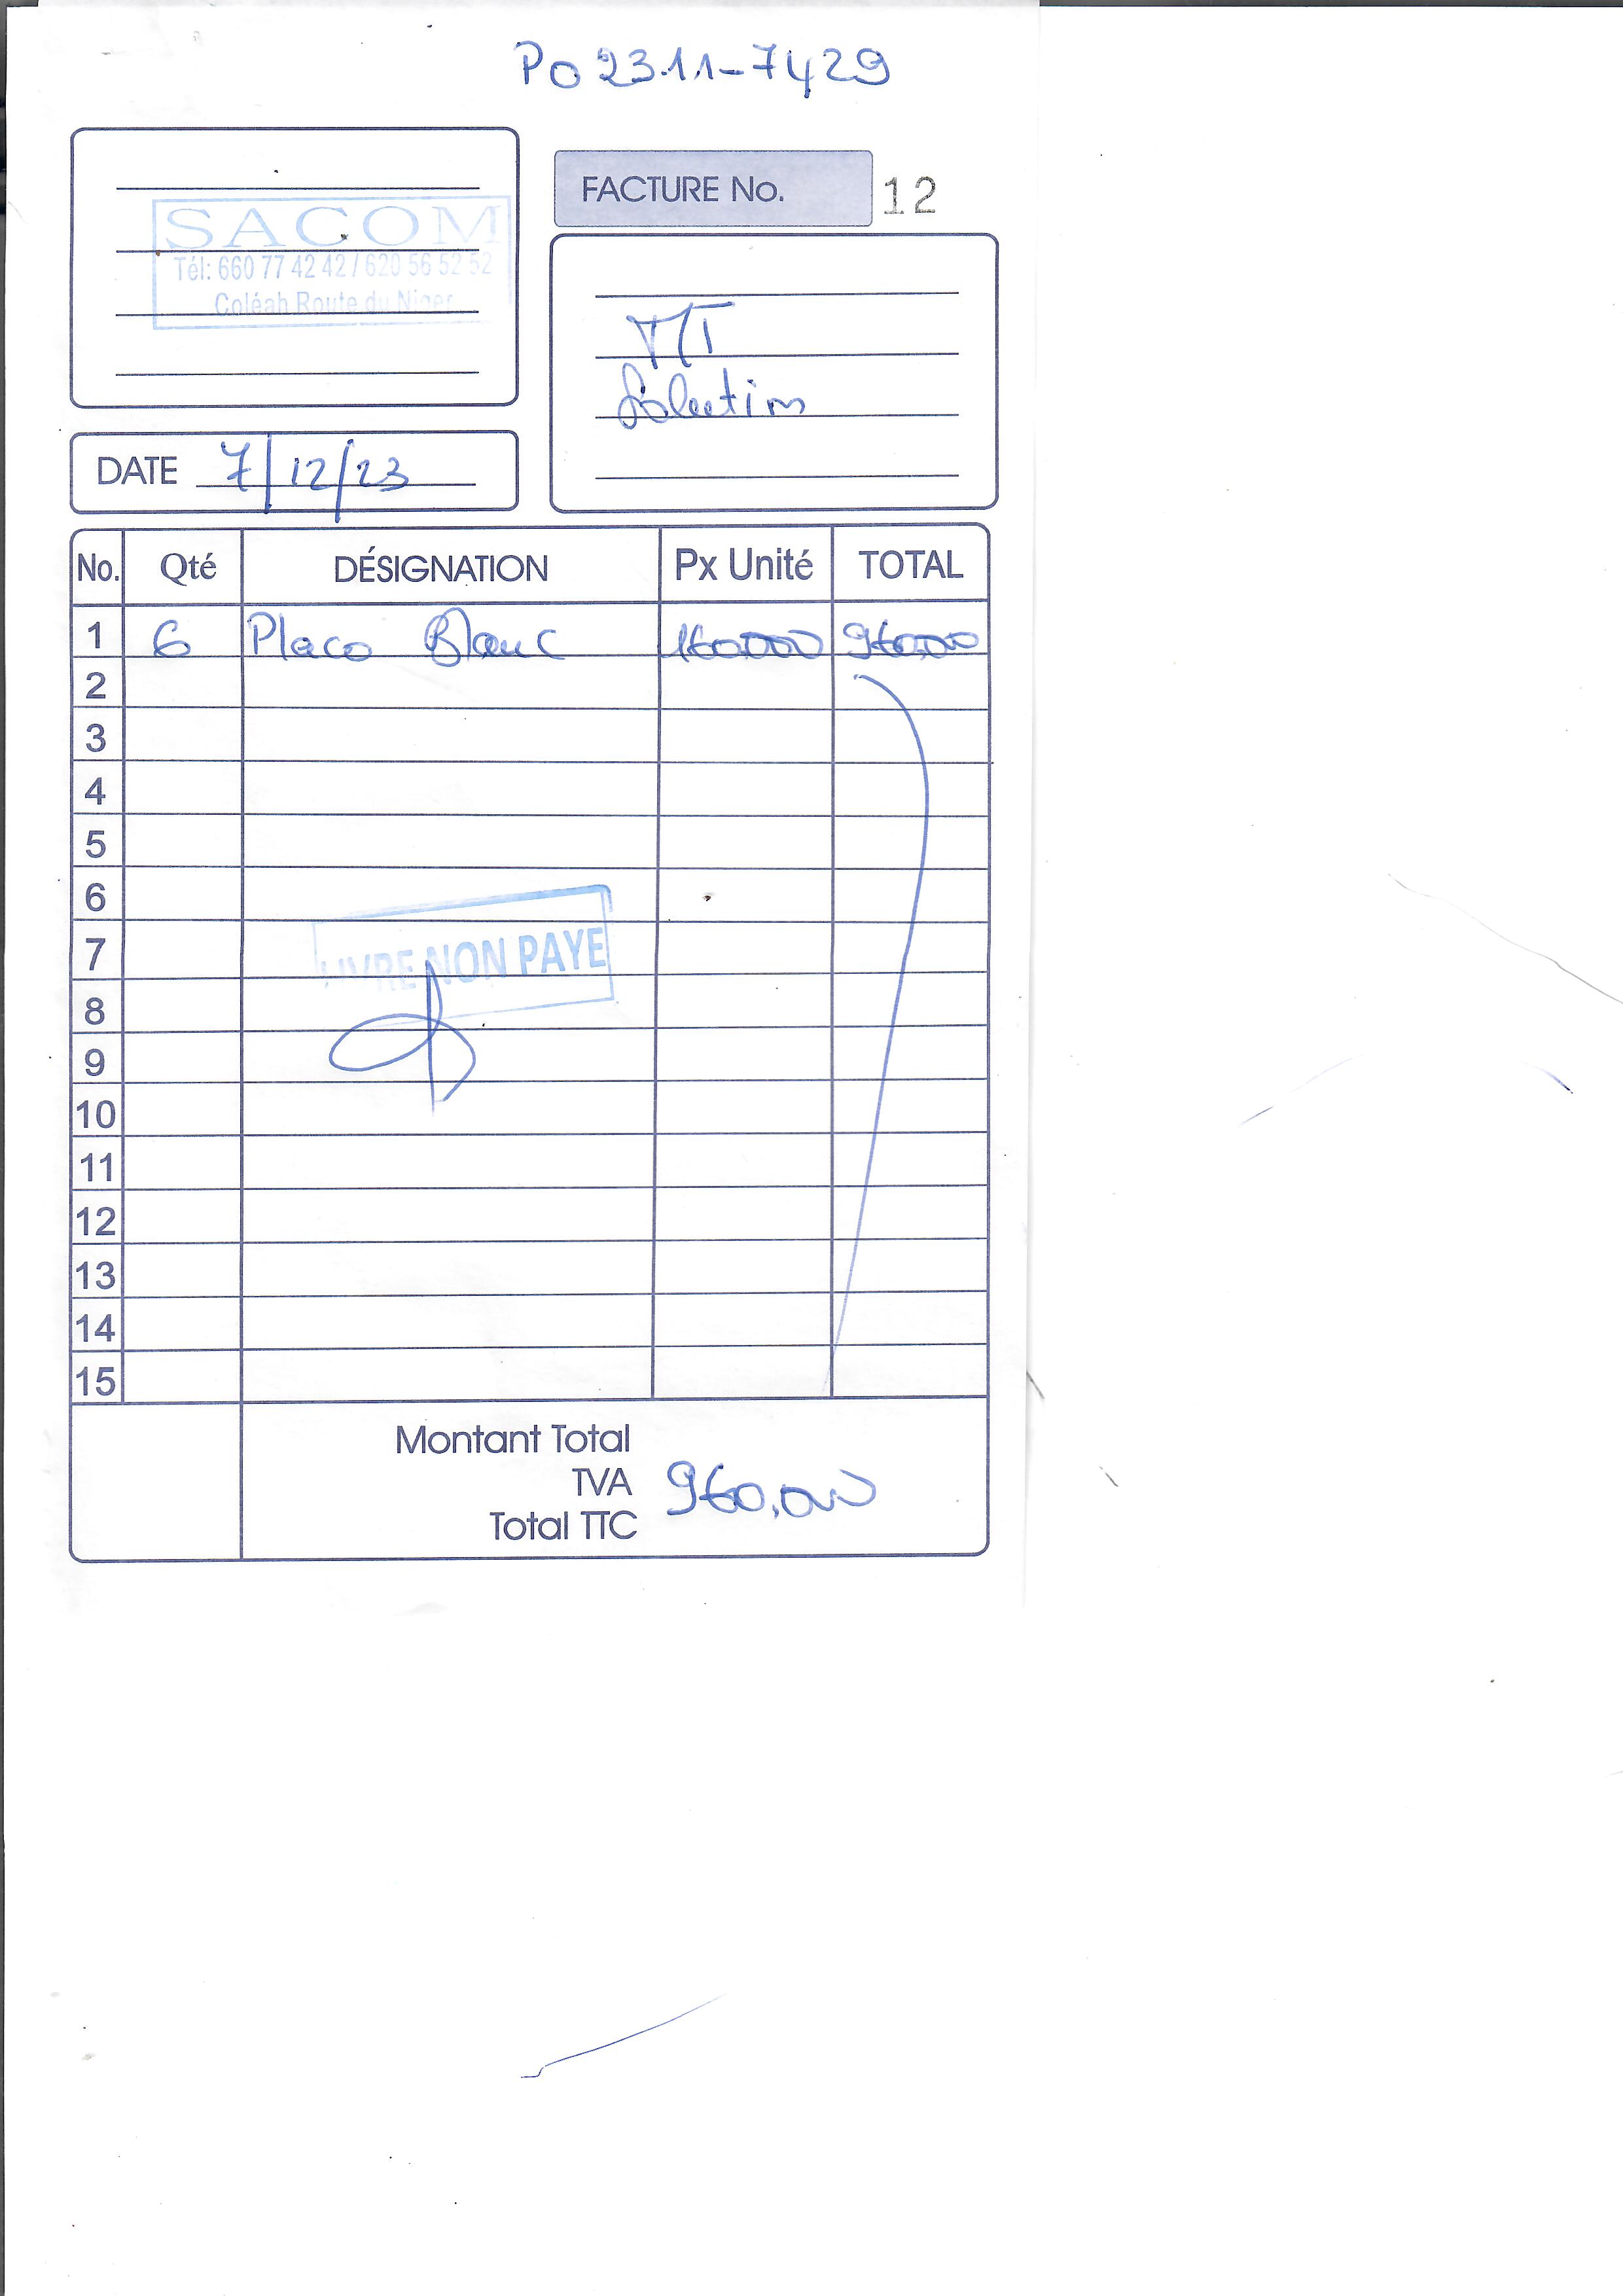 Po 2311-7429
FACTURE No. 12
SACOM
Tél: 660 77 42 42 / 620 56 52 52
Coléah Route du Niger
DATE 7/12/23
No. Qté DÉSIGNATION Px Unité TOTAL
1 6 Placo Blanc 160.000 960.000
2
3
4
5
6
7
LIVRE NON PAYE
8
9
10
11
12
13
14
15
Montant Total
TVA 960.000
Total TTC